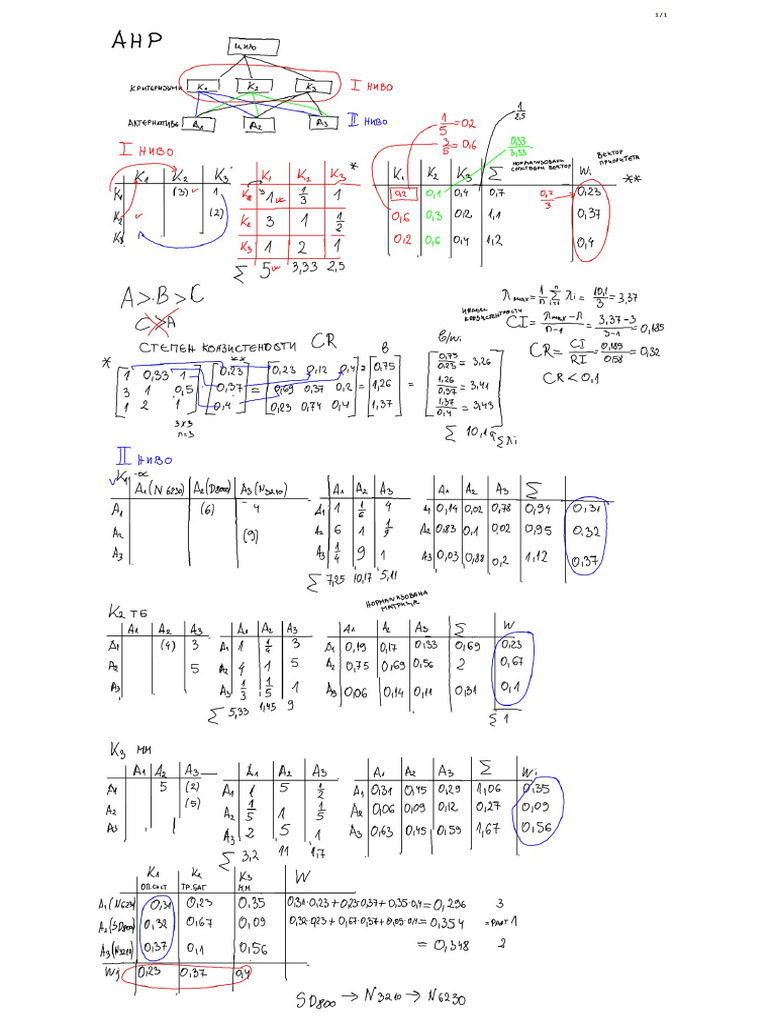 1 / 1
AHP
ЦИЉ
КРИТЕРИЈУМИ K1 K2 K3 I НИВО
АЛТЕРНАТИВЕ A1 A2 A3 II НИВО
1/5 = 0.2
3/5 = 0.6
0,33/3,33
1/2,5
I НИВО
K1 K2 K3
K1 (3) 1
K2 (2)
K3
K1 K2 K3 *
K1 1 1/3 1
K2 3 1 1/2
K3 1 2 1
Σ 5 3,33 2,5
K1 K2 K3 Σ НОРМАЛИЗОВАНИ СОПСТВЕНИ ВЕКТОР Wi ВЕКТОР ПРИОРИТЕТА
0,2 0,1 0,4 0,7 0,7/3 0,23 **
0,6 0,3 0,2 1,1 0,37
0,2 0,6 0,4 1,2 0,4
A > B > C
C > A
λmax = 1/n Σ λi = 10,1/3 = 3,37
CI = λmax - n / n-1 = 3,37-3 / 3-1 = 0,185
CR = CI/RI = 0,185/0.58 = 0,32
CR < 0,1
СТЕПЕН КОНЗИСТЕНОСТИ CR
* ** B B/wi
1 0,33 1 0,23 0,23 0,12 0,4 0,75 0,75/0.23 = 3,26
3 1 0,5 0,37 = 0,69 0,37 0,2 = 1,26 = 1,26/0,37 = 3,41
1 2 1 0,4 0,23 0,74 0,4 1,37 1,37/0,4 = 3,43
3x3
n=3
Σ 10,1 Σλi
II НИВО
K1 -ОС
A1 (N6230) A2 (D800) A3 (N3210)
A1 (6) 4
A2 (9)
A3
A1 A2 A3
A1 1 1/6 4
A2 6 1 1/9
A3 1/4 9 1
Σ 7,25 10,17 5,11
A1 A2 A3 Σ
A1 0,14 0,02 0,78 0,94 0,31
A2 0,83 0,1 0,02 0,95 0,32
A3 0,03 0,88 0,2 1,12 0,37
K2 ТБ
A1 A2 A3
A1 (4) 3
A2 5
A3
A1 A2 A3
A1 1 1/4 3
A2 4 1 5
A3 1/3 1/5 1
Σ 5,33 1,45 9
НОРМАЛИЗОВАНА МАТРИЦА
A1 A2 A3 Σ W
A1 0,19 0,17 0,33 0,69 0,23
A2 0,75 0,69 0,56 2 0,67
A3 0,06 0,14 0,11 0,31 0,1
Σ 1
K3 ММ
A1 A2 A3
A1 5 (2)
A2 (5)
A3 1
A1 A2 A3
A1 1 5 1/2
A2 1/5 1 1/5
A3 2 5 1
Σ 3,2 11 1,7
A1 A2 A3 Σ Wi
A1 0,31 0,45 0,29 1,06 0,35
A2 0,06 0,09 0,12 0,27 0,09
A3 0,63 0,45 0,59 1,67 0,56
K1 K2 K3 W
ОП.СИСТ ТР.БАТ ММ
A1 (N6230) 0,31 0,23 0,35 0,31·0,23+0,23·0,37+0,35·0,4 = 0,296 3
A2 (SD800) 0,32 0,67 0,09 0,32·0,23+0,67·0,37+0,09·0,4 = 0,354 = РАНГ 1
A3 (N3210) 0,37 0,1 0,56 = 0,348 2
Wj 0,23 0,37 0,4
SD800 → N3210 → N6230